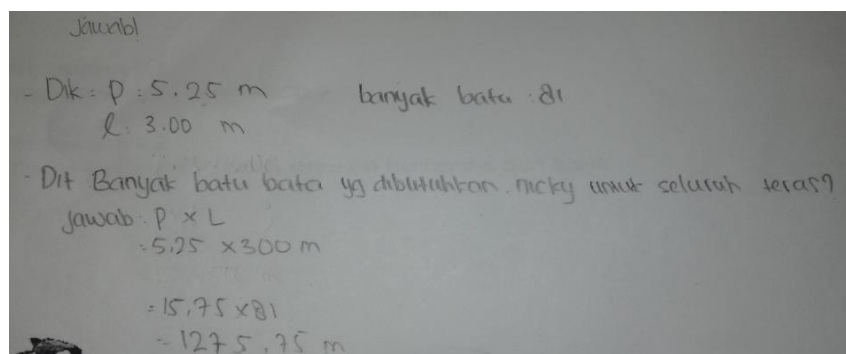 Jawab
- Dik : P : 5.25 m banyak bata : 81
l : 3.00 m
- Dit Banyak batu bata yg dibutuhkan nicky untuk seluruh teras?
Jawab : P x L
: 5,25 x 300 m
= 15,75 x 81
= 1275,75 m